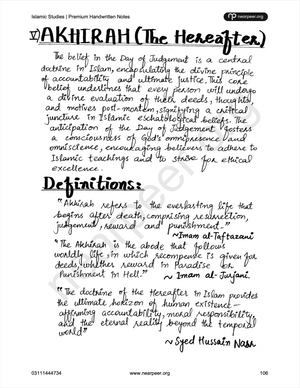 Islamic Studies | Premium Handwritten Notes
nearpeer.org
V) AKHIRAH (The Hereafter)
The belief in the Day of Judgement is a central
doctrine in Islam, encapsulating the divine principle
of accountability and ultimate justice. This core
belief underlines that every person will undergo
a divine evaluation of their deeds, thoughts
and motives post-mortem, signifying a critical
juncture in Islamic eschatological beliefs. The
anticipation of the Day of Judgement fosters
a consciousness of God's omnipresence and
omniscience, encouraging believers to adhere to
Islamic teachings and to strive for ethical
excellence.
Definitions:
"Akhirah refers to the everlasting life that
begins after death, comprising resurrection,
judgement, reward and punishment."
~Imam al-Taftazani
"The Akhirah is the abode that follows
worldly life, in which recompense is given for
deeds, whether reward in Paradise or
Punishment in Hell." ~ Imam al-Jurjani.
"The doctrine of the Hereafter in Islam provides
the ultimate horizon of human existence—
affirming accountability, moral responsibility,
and the eternal reality beyond the temporal
world"
~ Syed Hussain Nasr
03111444734
www.nearpeer.org
106